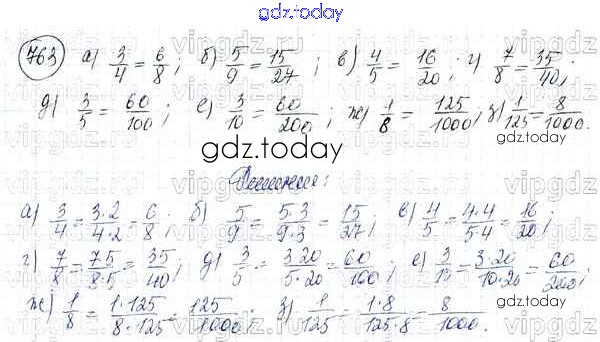 gdz.today
763 а) 3/4 = 6/8; б) 5/9 = 15/27; в) 4/5 = 16/20; г) 7/8 = 35/40;
д) 3/5 = 60/100; е) 3/10 = 60/200; ж) 1/8 = 125/1000; з) 1/125 = 8/1000.
gdz.today
gdz.today
Решение:
а) 3/4 = 3·2/4·2 = 6/8; б) 5/9 = 5·3/9·3 = 15/27; в) 4/5 = 4·4/5·4 = 16/20;
г) 7/8 = 7·5/8·5 = 35/40; д) 3/5 = 3·20/5·20 = 60/100; е) 3/10 = 3·20/10·20 = 60/200;
gdz.today
gdz.today
ж) 1/8 = 1·125/8·125 = 125/1000; з) 1/125 = 1·8/125·8 = 8/1000.
gdz.today